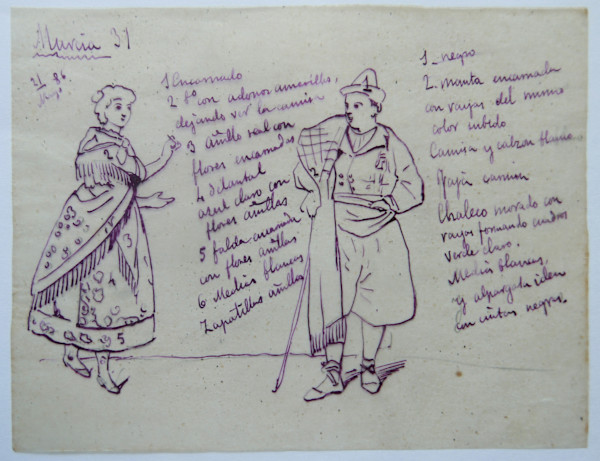 Murcia 31
31 96
Myo
1 Encarnado
2 Id con adornos amarillos,
dejando ver la camisa
3 Añill real con
flores encarnadas
4 delantal
azul claro con
flores añillas
5 falda encarnada
con flores añillas
6 Medias blancas
Zapatillas añillas
1
2
3
4
5
1
2
1_ negro
2. manta encarnada
con rayas del mismo
color subido
Camisa y calzon blanco
Faja carmin
Chaleco morado con
rayas formando cuadros
verde claro.
Medias blancas,
y alpargata idem
con cintas negras.